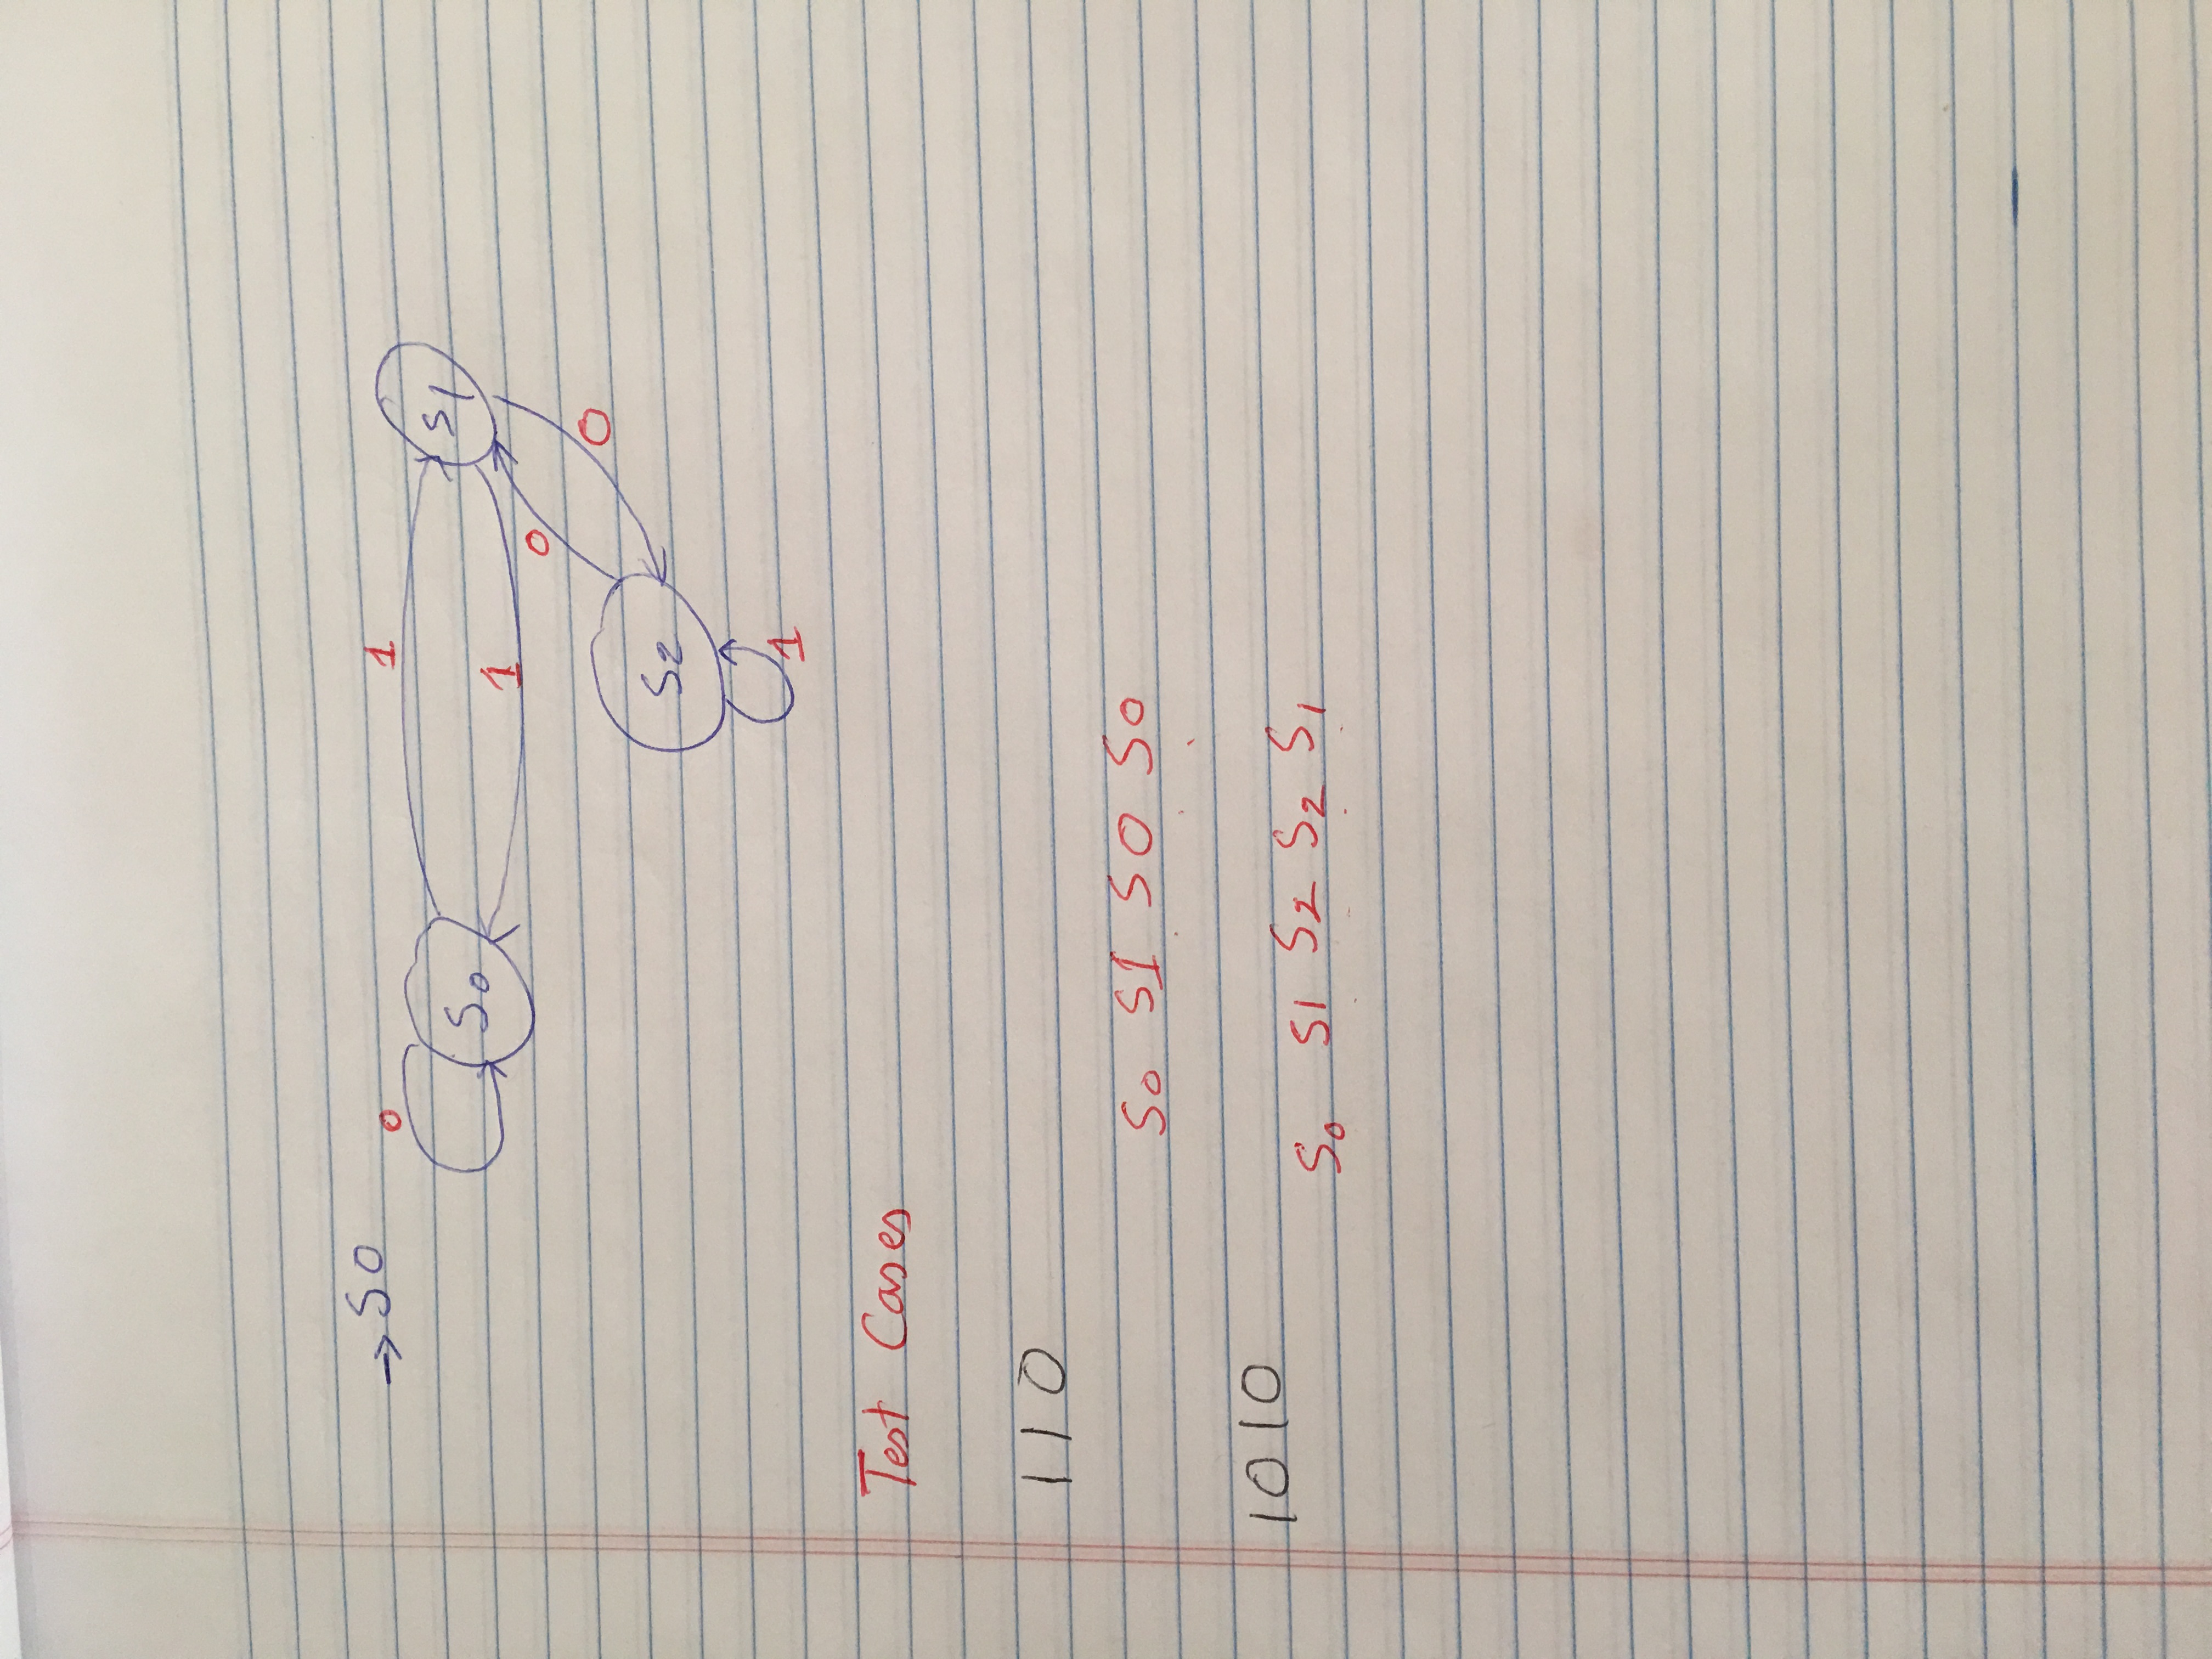 → S0
0 1
S0 S1
1
0
0
S2
1
Test Cases
110
S0 S1 S0 S0
1010
S0 S1 S2 S2 S1